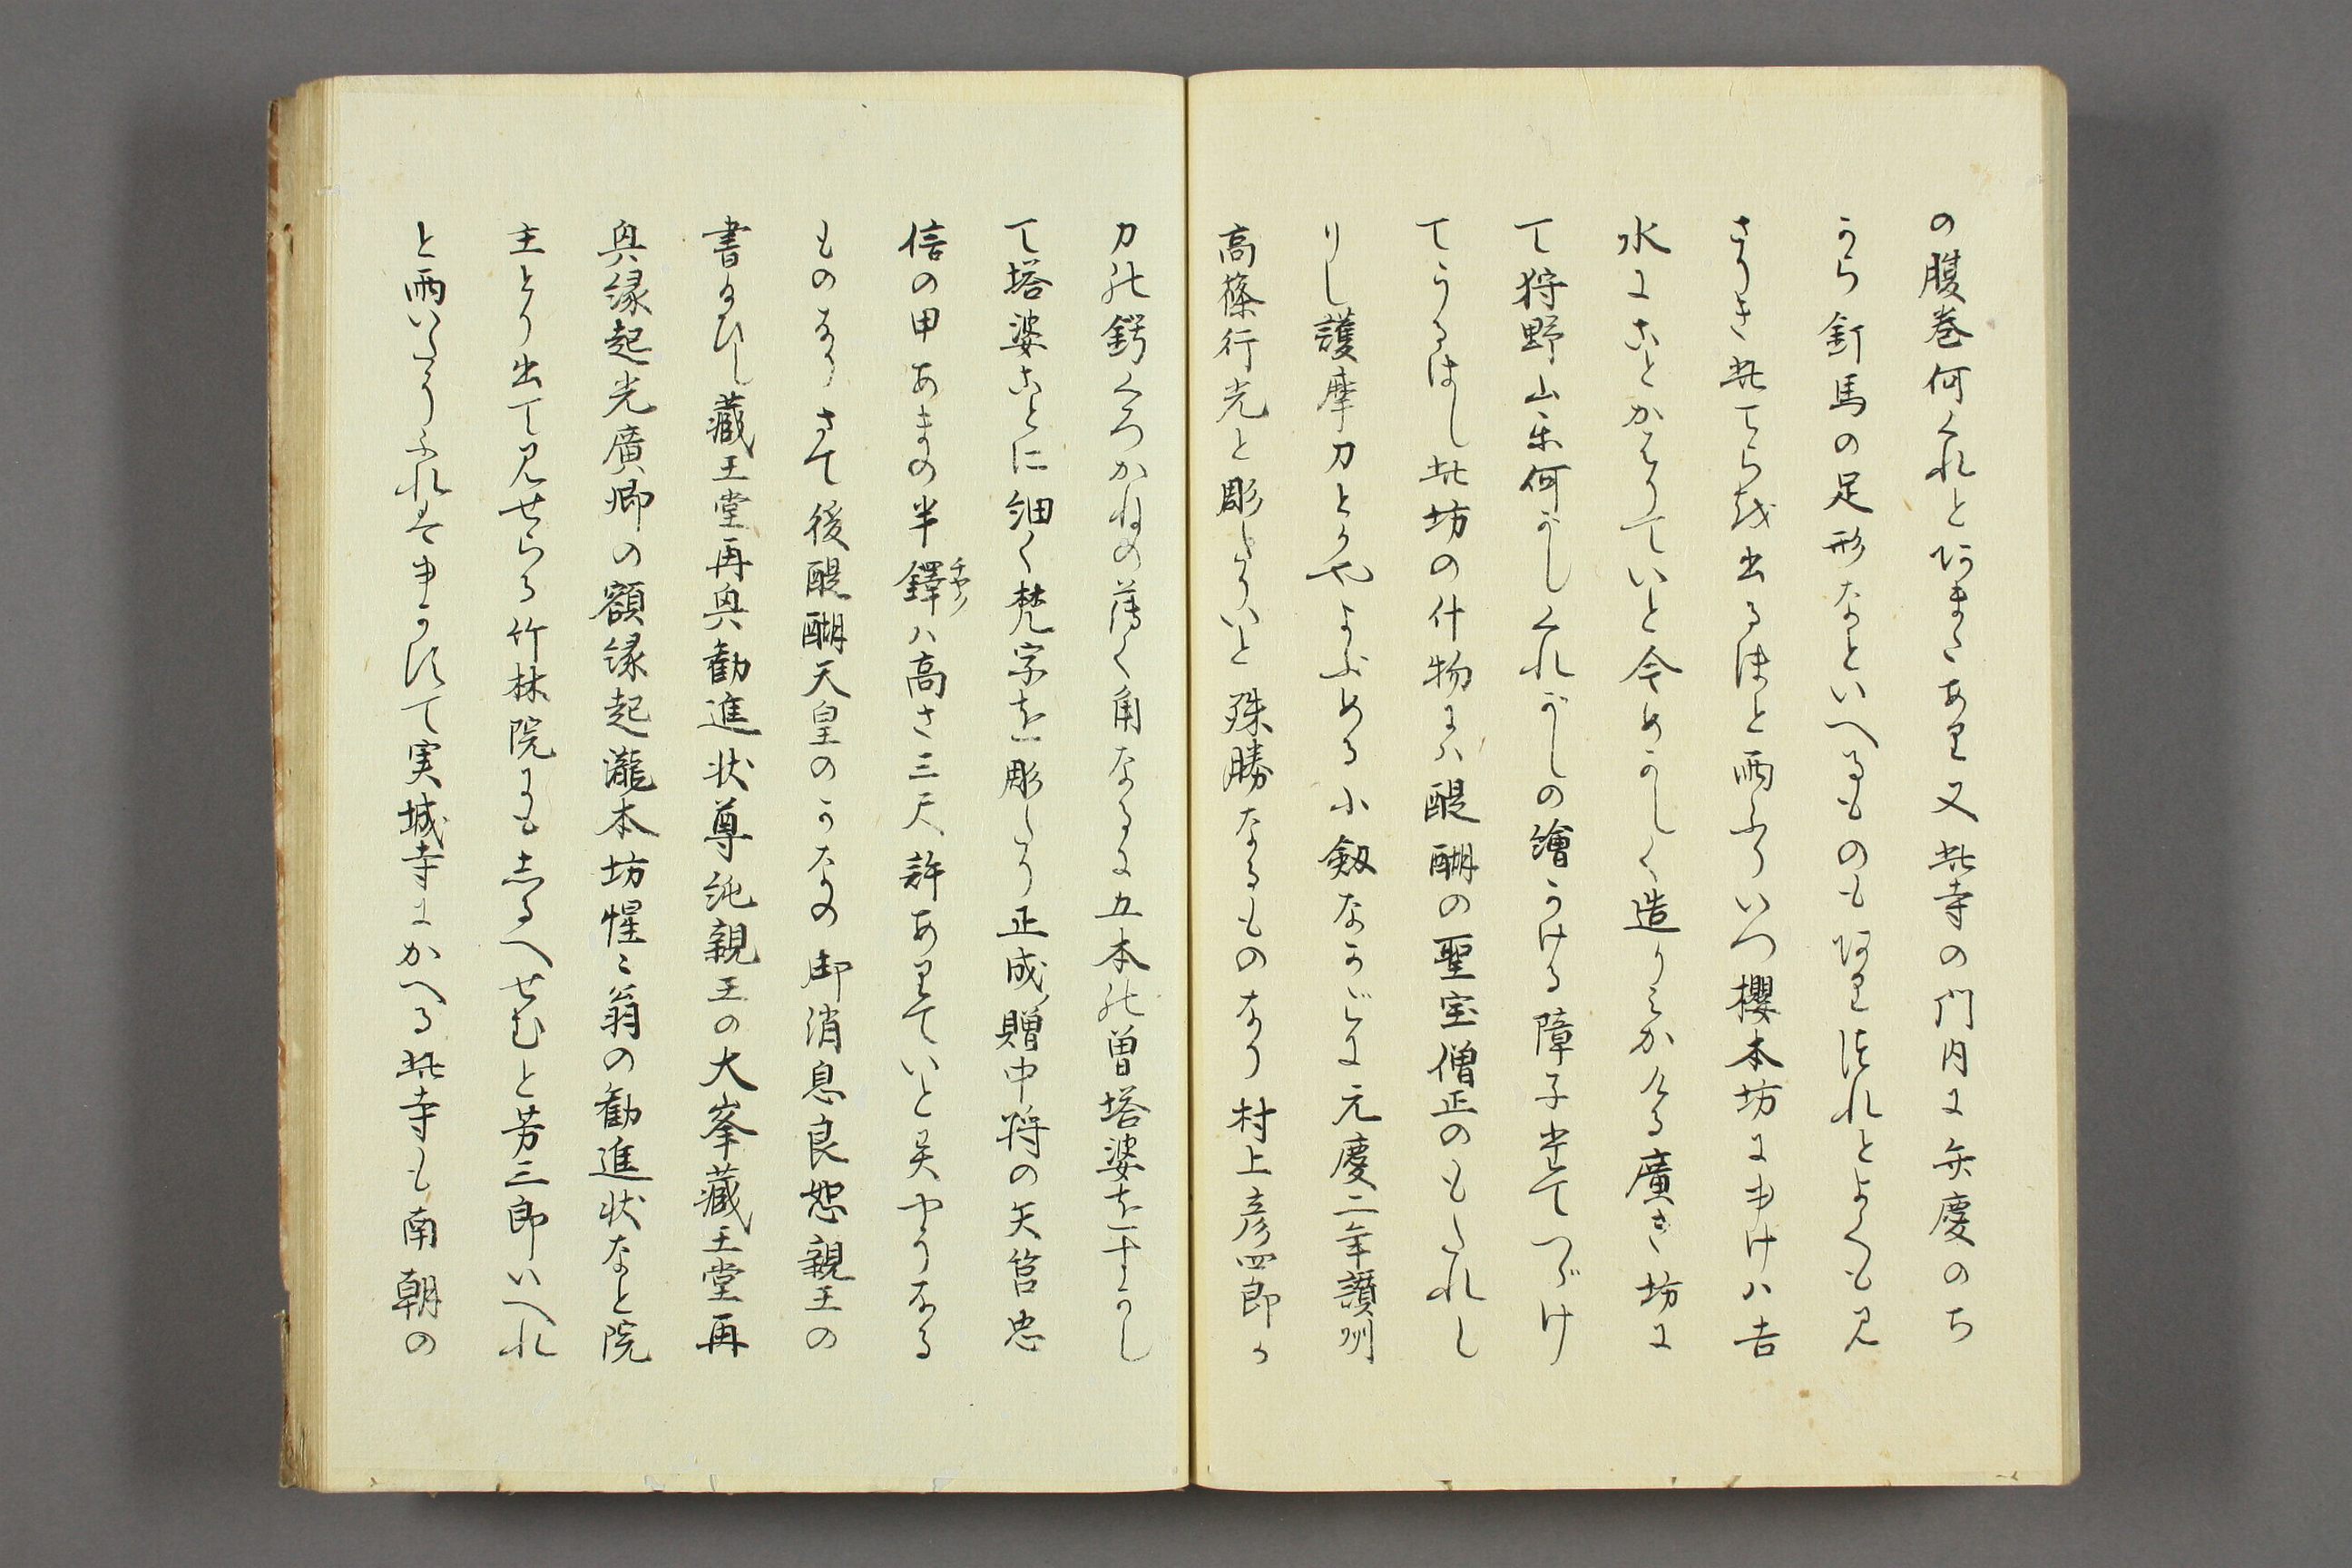 の腹巻何くれとあまたあり又此寺の門内に弁慶のち
から釘馬の足形なといへるものもありつれとよくも見
さりき此てらを出るほと雨ふりいつ櫻本坊に申けハ吉
水にことかはりていと今めかしく造りみかける廣き坊に
て狩野山楽何がしくれがしの繪かける障子たてつゞけ
てうるはし此坊の什物にハ醍醐の聖宝僧正のもたれし
りし護摩刀とかやよぶめる小剱なかごに元慶二年讃州
高篠行光と彫たりいと殊勝なるものなり村上彦四郎か
刀の鍔くろかねの薄く角なるに五本の曽塔婆をすかし
て塔婆ことに細く梵字を彫たり正成贈中将の矢筥忠
信の甲あまの半鐸ハ高さ三尺許ありていと異やうなる
ものなりさて後醍醐天皇のかなの御消息良恕親王の
書給ひし藏王堂再興勧進状尊純親王の大峯藏王堂再
興縁起光廣卿の額縁起瀧本坊惺々翁の勧進状なと院
主とり出て見せらる竹林院にもしるへせむと芳三郎いへれ
と雨いたうふれは申さして実城寺にかへる此寺も南朝の